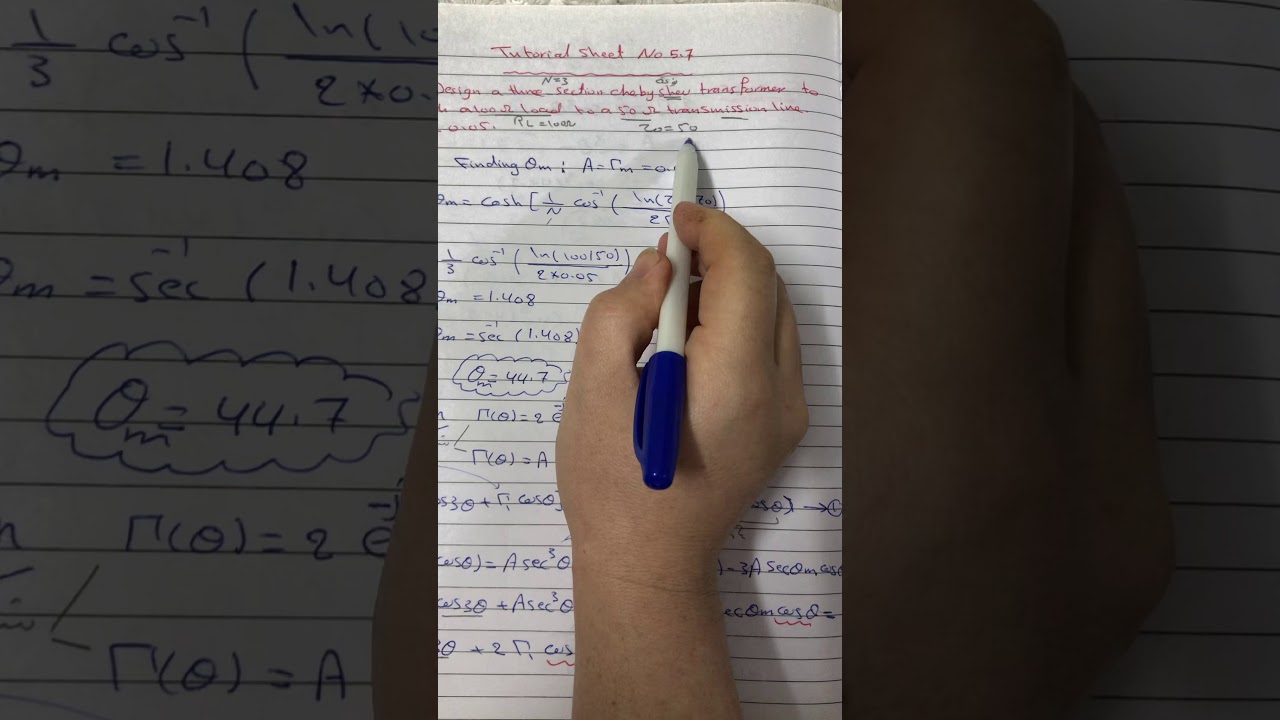 Tutorial sheet No 5.7
N=3
Design a three section chebyshev transformer to
a 100Ω load to a 50 Ω transmission line
0.05. RL=100Ω Z0=50
Finding θm : A=Γm=0.
θm= cosh [ 1/N cos⁻¹ ( ln(Z
1/3 cos⁻¹ ( ln(100/50) / 2*0.05 )
θm =1.408
θm =sec⁻¹ (1.408)
θm=44.7
Γ(θ)=2 e⁻ʲ
Γ(θ)=A
cos3θ + Γ1 cosθ cosθ) → 1
cosθ)=Asec³θ )-3A secθm cosθ
cos3θ + Asec³θ secθm cosθ=
3θ + 2 Γ1 cos